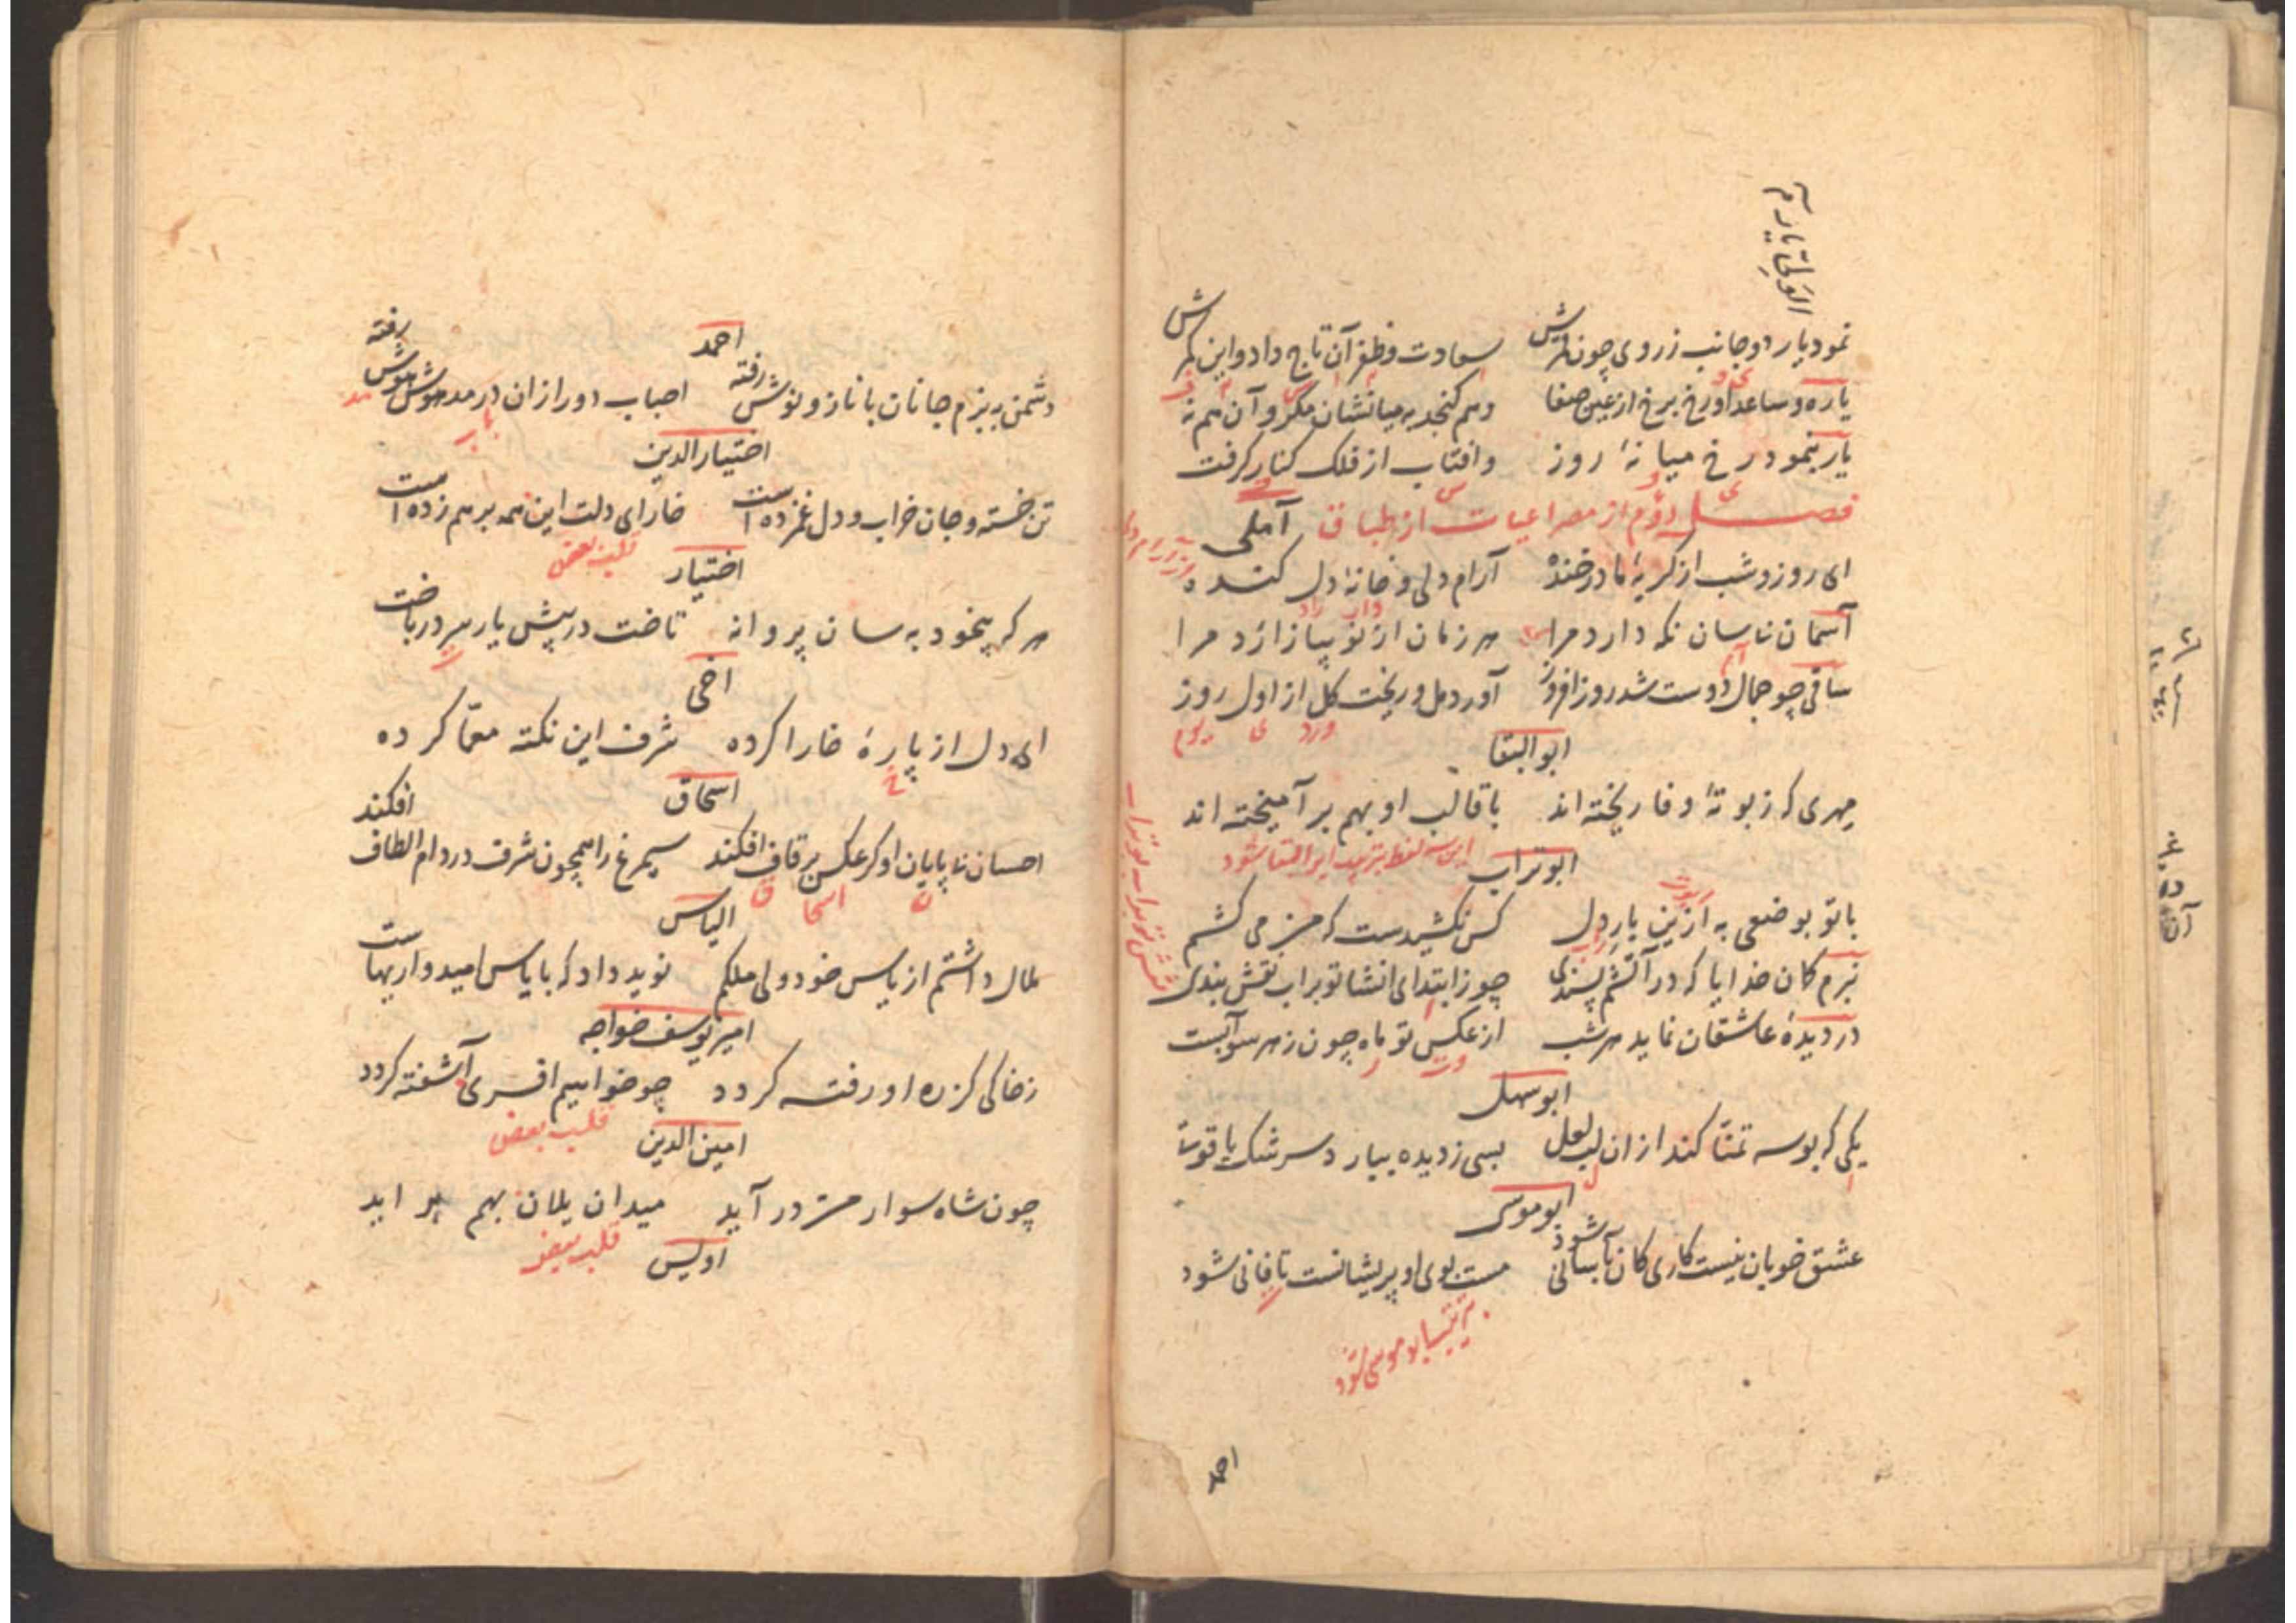 نمود یار دو جانب ز روی چون قمرش سعادت و ظفر آن تاج داد و این کمرش
یاره و ساعد او رخ برخ از عین صفا وهم گنجد به میانشان مگر و آن هم نه
یار بنمود رخ میانهٔ روز وافتاب از فلک کنار گرفت
فصل دوم از مصراعیات از طباق آملی
ای روز و شب از گریهٔ ما در خنده آرام دلی و خانهٔ دل کنده
آسمان ناسان نگه دارد مرا هر زمان از نو بیازارد مرا
ساقی چو جمال دوست شد روز افروز آورد مل و ریخت گل از اول روز
ورد ی یوم
ابو البقا
مهری که ز بوتهٔ وفا ریخته‌اند با قالب او بهم بر آمیخته‌اند
ابوتراب
این سه لفظ بترتیب ابوالبقا شود
با تو بوضعی به ازین بار دل کس نکشیدست که من می کشم
نبرم گمان خدایا که در آتشم پسندی چو ز ابتدای انشا تو براب نقش بندی
در دیدهٔ عاشقان نماید هر شب از عکس تو ماه چون ز هر سو آبست
ابو سهل
یکی که بوسه تمنّا کند از ان لب لعل بسی ز دیده ببارد سرشک یاقوت
ابوموسی
عشق خوبان نیست کاری کان بآسانی شود مست بوی او پریشانست تا فانی شود
بترتیب ابو موسی شود
احمد
احمد
دشمن به بزم جانان با ناز و نوش رفته احباب دور ازان در مدهوش هوش رفته
اختیار الدین
تن خسته و جان خراب و دل غمزده است خارای دلت این همه بر هم زده است
قلب بعض
اختیار
هر که بیخود به سان پروانه تاخت در پیش یار سر در باخت
اخی
ای دل از پارهٔ خارا کرده شرف این نکته معمّا کرده
اسحاق
احسان نا پایان او گر عکس بر قاف افکند سیمرغ را همچون شرف در دام الطاف افکند
الیاس
ملال داشتم از یاس خود ولی ملکم نوید داد که با یاس امیدواریهاست
امیر یوسف خواجه
ز خاکی کز ره او رفته گردد چو خوابیم افسری آشفته گردد
قلب بعض
امین الدین
چون شاه سوار من در آید میدان یلان بهم بر اید
قلب بعض
اویس